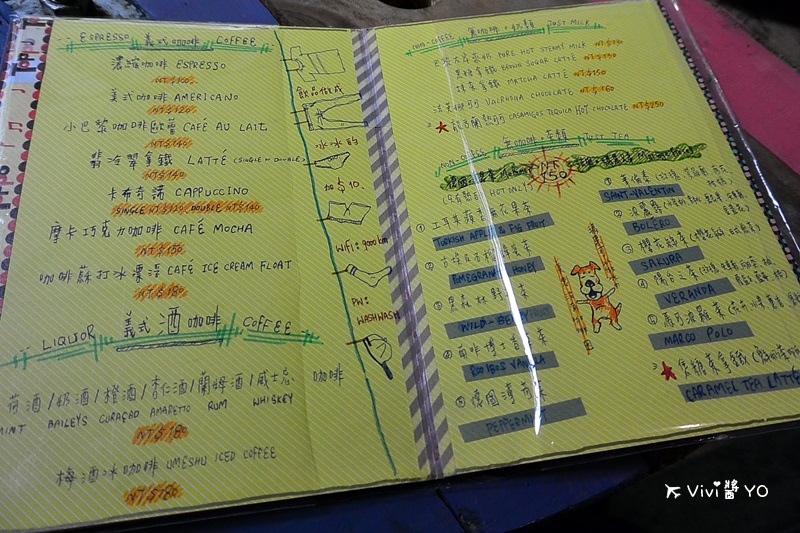 ESPRESSO 義式咖啡 COFFEE
濃縮咖啡 ESPRESSO
NT$100
美式咖啡 AMERICANO
NT$120
小巴黎咖啡歐蕾 CAFÉ AU LAIT
NT$140
翡冷翠拿鐵 LATTÉ (SINGLE = DOUBLE)
NT$140
卡布奇諾 CAPPUCCINO
SINGLE NT$120 DOUBLE NT$140
摩卡巧克力咖啡 CAFÉ MOCHA
NT$150
咖啡蘇打冰漂浮 CAFÉ ICE CREAM FLOAT
NT$180
LIQUOR 義式酒咖啡 COFFEE
荷酒/奶酒/橙酒/杏仁酒/蘭姆酒/威士忌 咖啡
MINT BAILEYS CURAÇAO AMARETTO RUM WHISKEY
NT$180
梅酒冰咖啡 UMESHU ICED COFFEE
NT$180
飲品做成
冰冰的
加$10
WIFI: 9000km
PW: WASHWASH
NON-COFFEE 無咖啡 JUST MILK
PURE HOT STEAMY MILK
黑糖拿鐵 BROWN SUGAR LATTÉ
抹茶拿鐵 MATCHA LATTÉ NT$150
VALRHONA CHOCOLATE NT$160
CASAMIGOS TEQUILA HOT CHOCOLATE NT$250
NON-COFFEE 無咖啡 JUST TEA
POT 150
(只有熱的 HOT ONLY)
① 土耳其蘋果無花果茶
TURKISH APPLE & FIG FRUIT
②
POMEGRANATE HONEY
③ 黑森林野莓茶
WILD-BERRY
④ 南非博士香草茶
ROOIBOS VANILLA
⑤ 德國薄荷茶
PEPPERMINT
①
SAINT-VALENTIN
② 波麗露
BOLÉRO
③ 櫻花綠茶
SAKURA
④ 陽台之茶
VERANDA
⑤ 馬可波羅茶
MARCO POLO
焦糖茶拿鐵
CARAMEL TEA LATTÉ
Vivi醬 YO